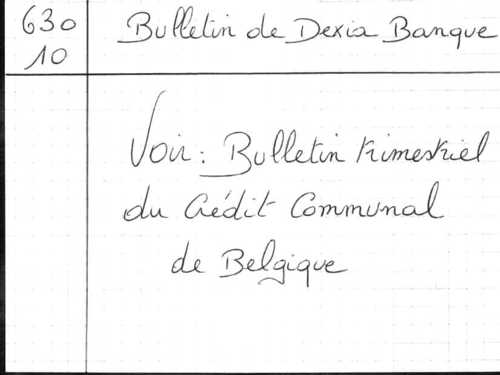 630 Bulletin de Dexia Banque
10
Voir : Bulletin trimestriel
du Crédit Communal
de Belgique